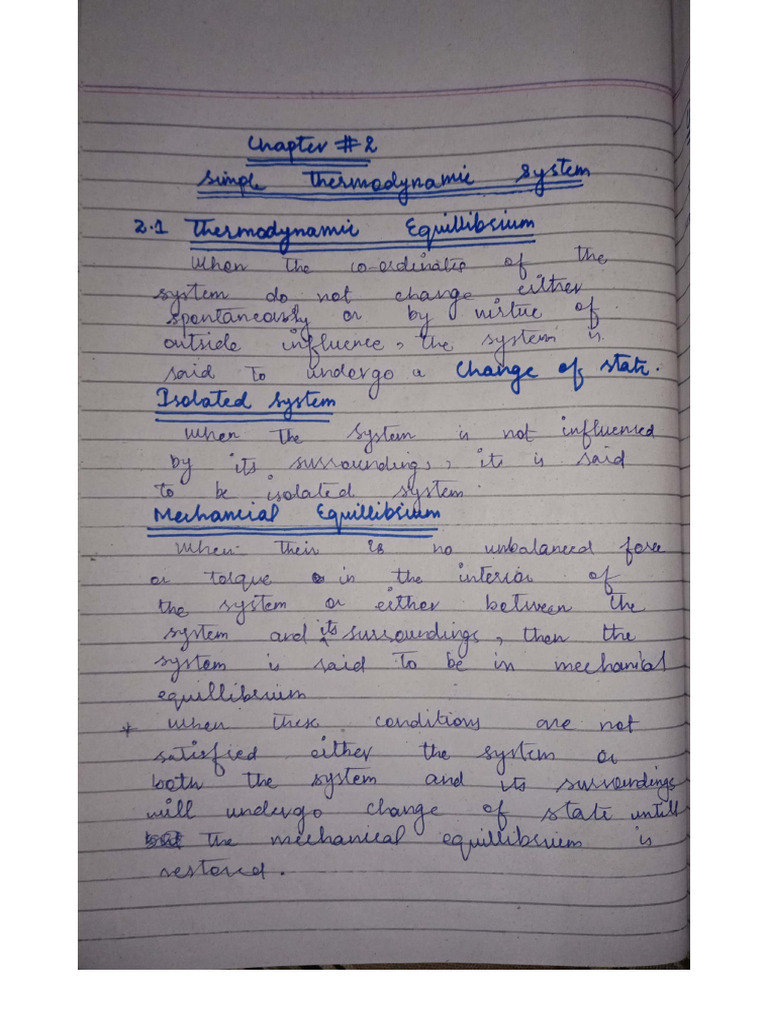 Chapter # 2
Simple Thermodynamic System
2.1 Thermodynamic Equillibrium
When the co-ordinates of the
system do not change either
spontaneously or by virtue of
outside influence, the system is
said to undergo a change of state.
Isolated System
When the system is not influenced
by its surroundings, it is said
to be isolated system.
Mechanical Equillibrium
When their is no unbalanced force
or torque in the interior of
the system or either between the
system and its surroundings, then the
system is said to be in mechanical
equillibrium
* When these conditions are not
satisfied either the system or
both the system and its surroundings
will undergo change of state untill
the mechanical equillibrium is
restored.